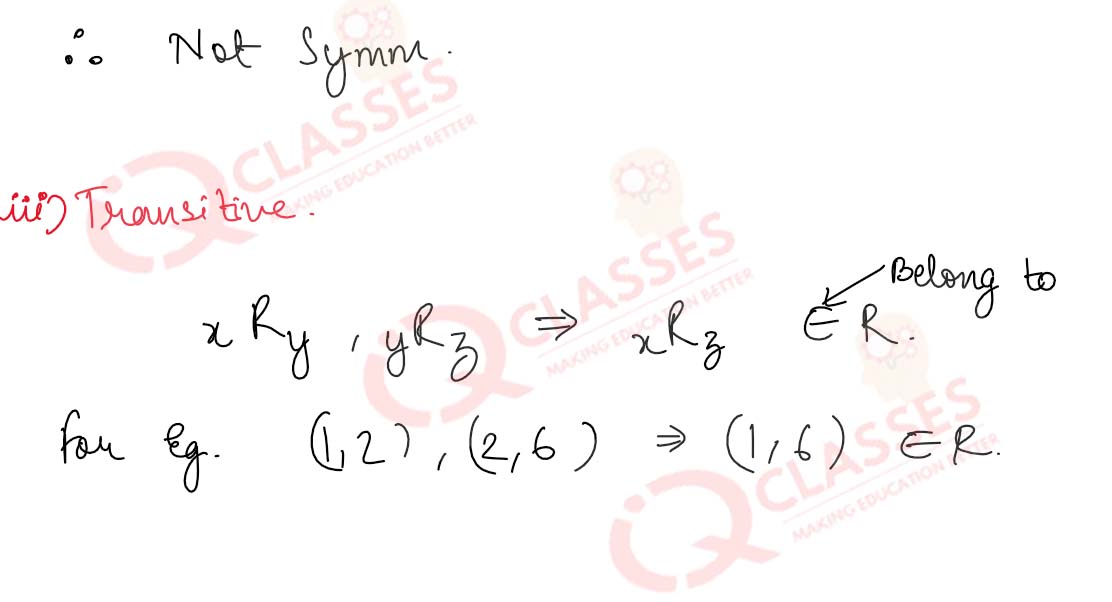 ∴ Not Symm.
iii) Transitive.
Belong to
xRy , yRz ⇒ xRz ∈ R.
for Eg. (1,2) , (2,6) ⇒ (1,6) ∈ R.
IQ CLASSES
MAKING EDUCATION BETTER
IQ CLASSES
MAKING EDUCATION BETTER
IQ CLASSES
MAKING EDUCATION BETTER